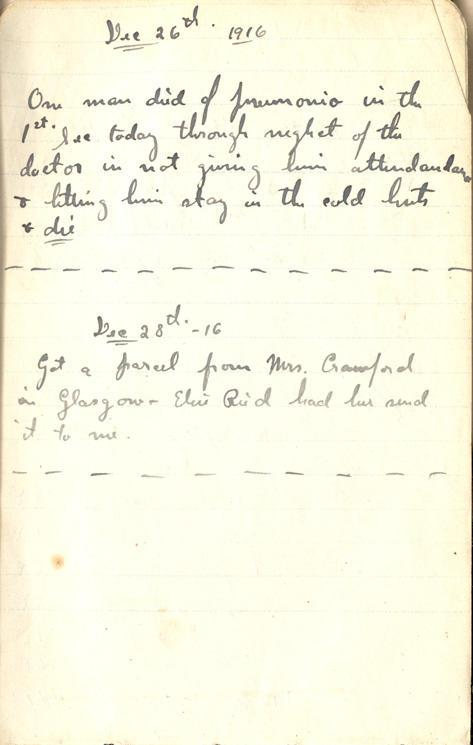 Dec 26th. 1916
One man died of pneumonia in the
1st. Sec today through neglect of the
doctor in not giving him attendance
& letting him stay in the cold huts
& die
Dec 28th. -16
Got a parcel from Mrs. Crawford
in Glasgow - Elsie Reid had her send
it to me.